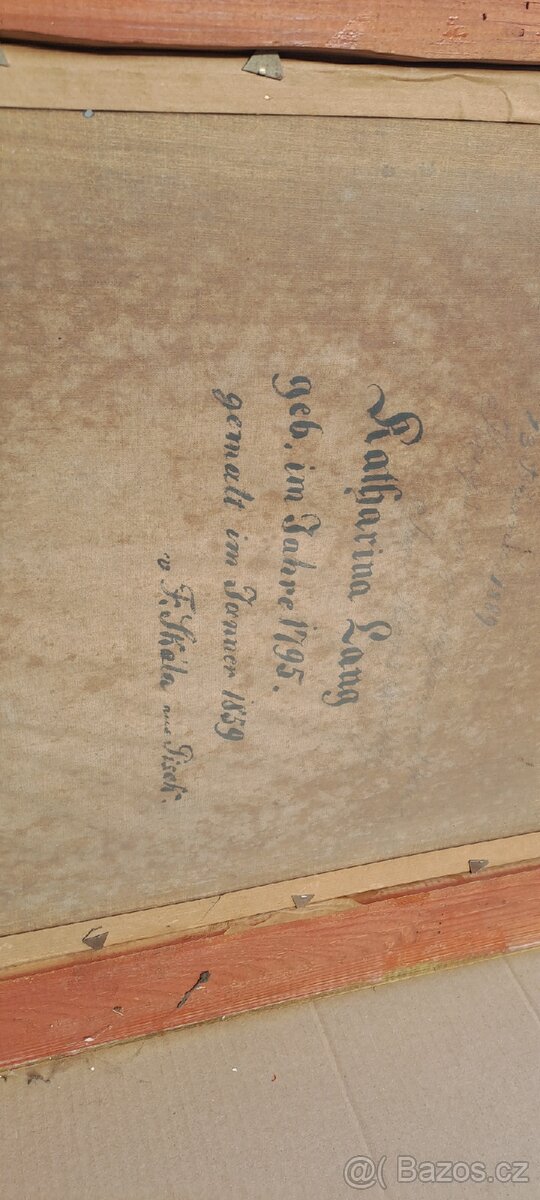 Katharina Lang
geb. im Jahre 1795.
gemalt im Jänner 1859
v F. Skála aus Pisek.
@( Bazos.cz